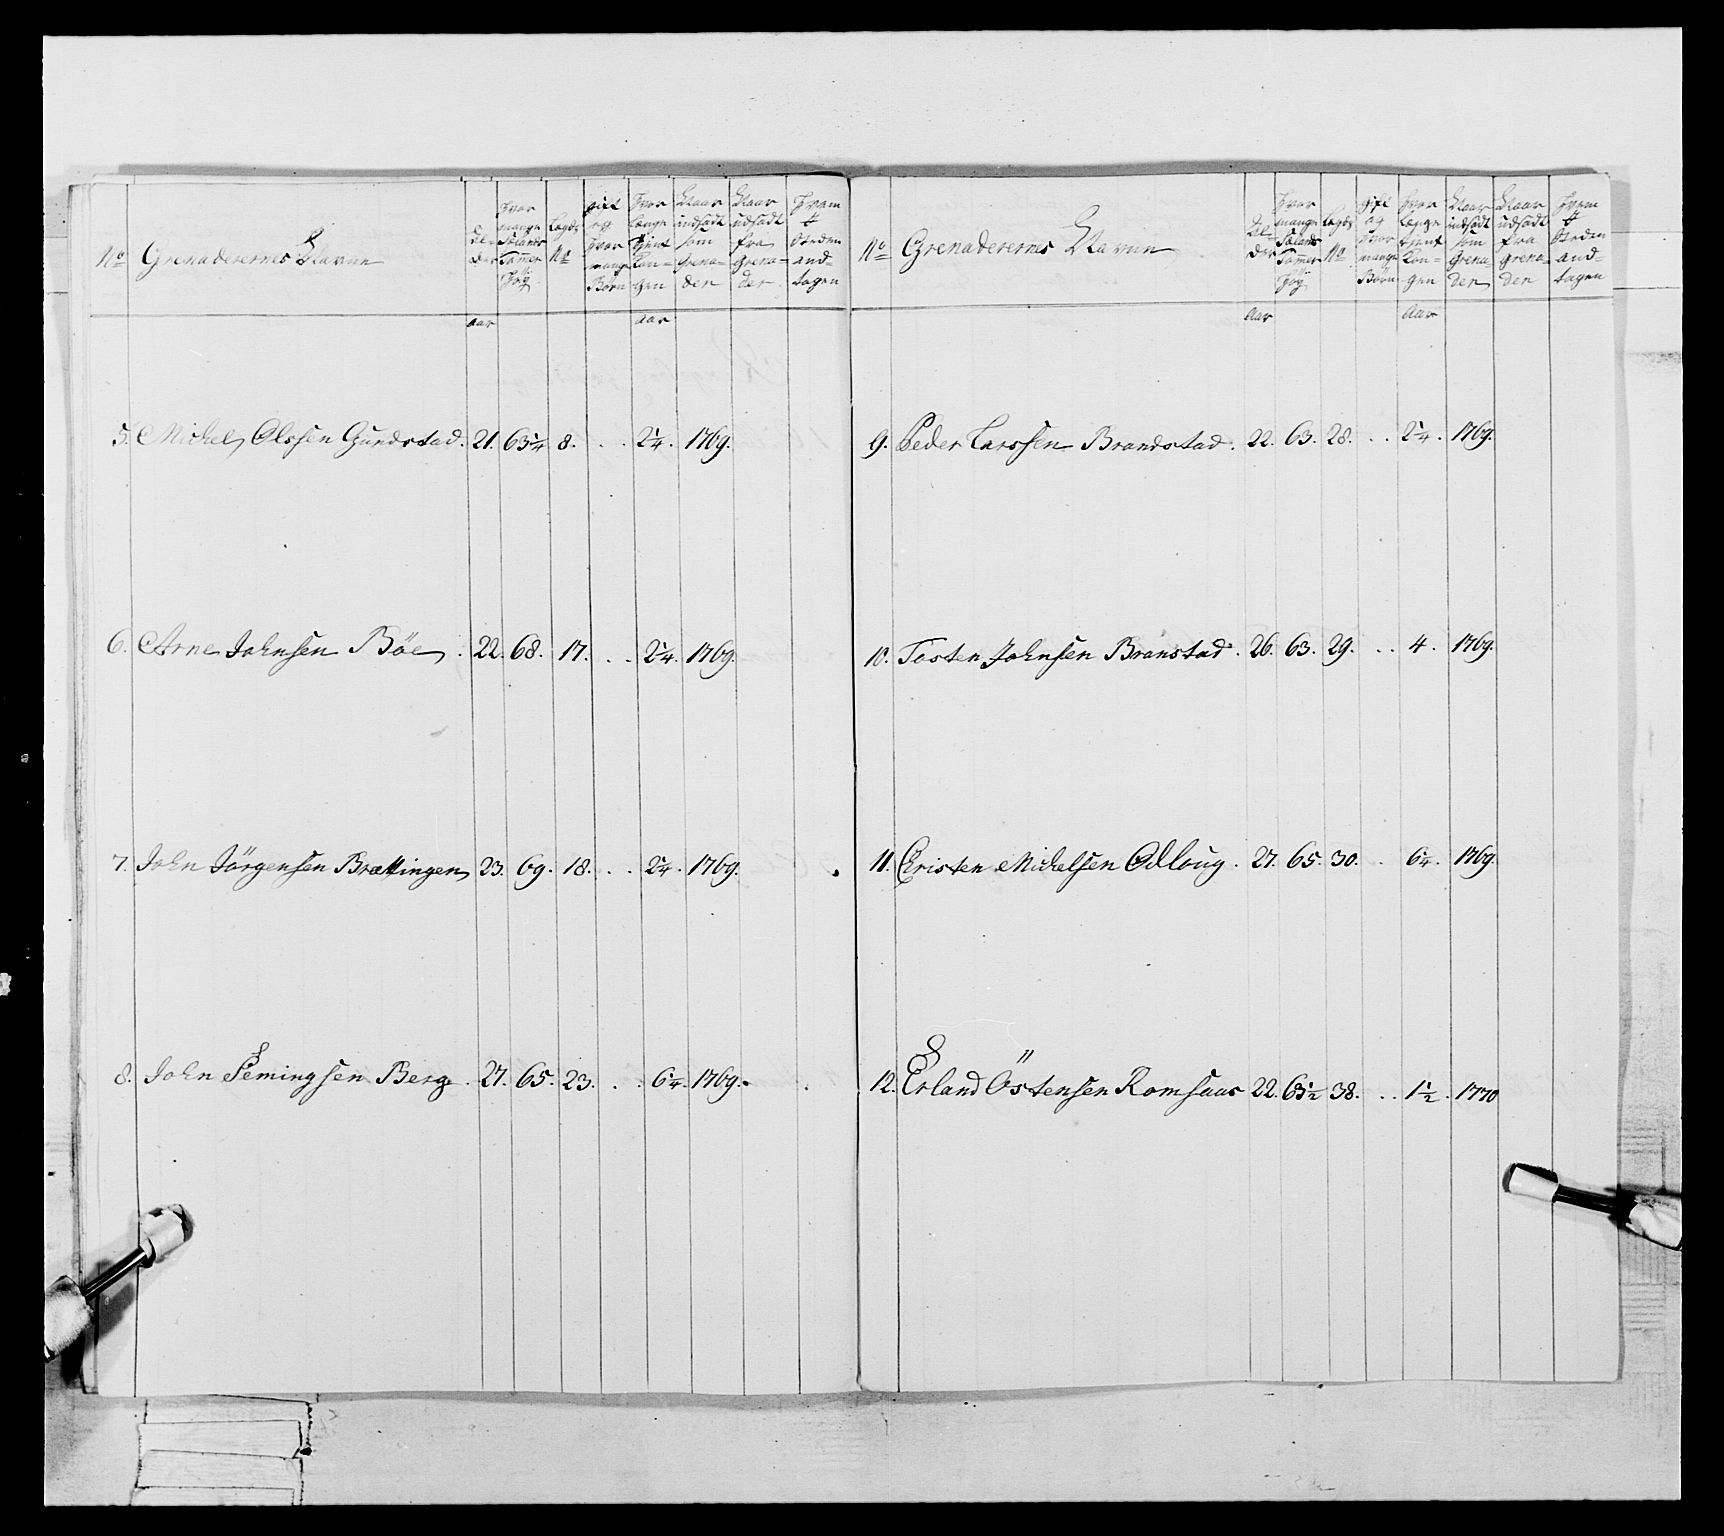 No Grenaderernes Navne | Al-der | Hvor mange Sælands Tommer Høy | Lægds No | gift og Hvor mange Børn | Hvor længe tjent Kon-gen | Naar indsadt som Grena-der | Naar udsadt fra Grena-der | Hvem # Steden and-tagen
Aar Aar
5. Michel Olssen Gundstad. 21. 63¼ 8. . . 2¼. 1769.
6. Arne Johnsen Böe. 22. 68. 17. . . 2¼. 1769.
7. John Jörgensen Brættingen 23. 69. 18. . . 2¼. 1769.
8. John Semingsen Berg. 27. 65. 23. . . 6¼. 1769.
No Grenaderernes Navne | Al-der | Hvor mange Sælands Tommer Høy | Lægds No | gift og Hvor mange Børn | Hvor længe tjent Kon-gen | Naar indsadt som Grena-der | Naar udsadt fra Grena-der | Hvem # Steden and-tagen
Aar Aar
9. Peder Larssen Brandstad. 22. 63. 28. . . 2¼. 1769.
10. Tosten Johnsen Branstad. 26. 63. 29. . . 4. 1769.
11. Christen Michelsen Odloug. 27. 65. 30. . . 6¼. 1769.
12. Erland Östensen Romsaas 22. 63½ 38. . . 1½. 1770